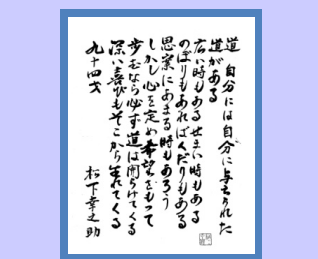 道
自分には自分に与えられた
道がある
広い時もあるせまい時もある
のぼりもあればくだりもある
思案にあまる時もあろう
しかし心を定め希望をもって
歩むなら必ず道は開らけてくる
深い喜びもそこから生れてくる
九十四才
松下幸之助